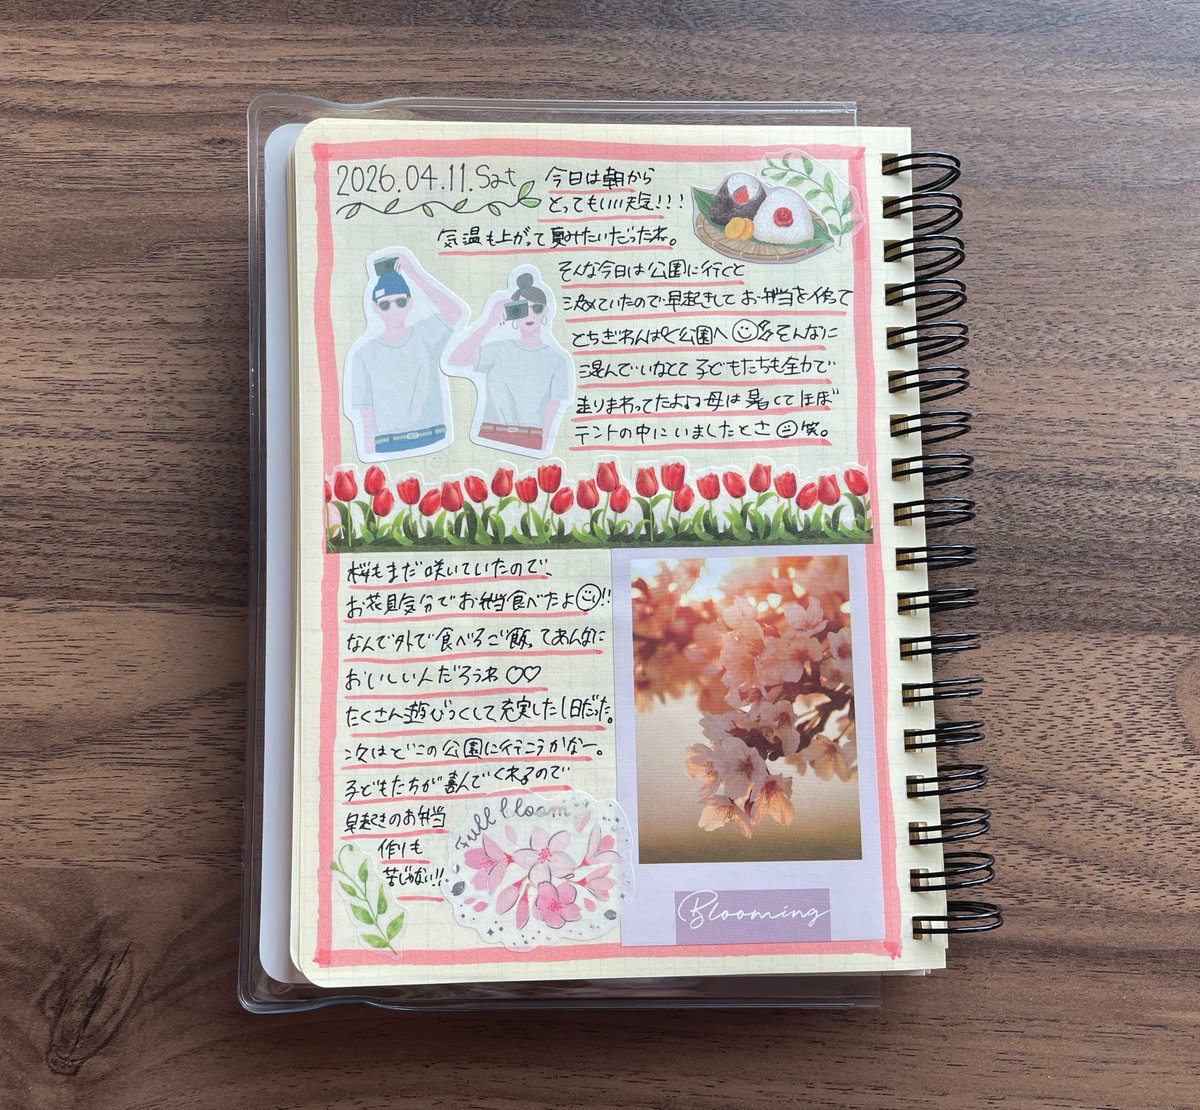 2026.04.11.Sat
今日は朝から
とってもいい天気!!!
気温も上がって夏みたいだったね。
そんな今日は公園に行くと
決めていたので早起きしてお弁当を作って
とちぎわんぱく公園へ そんなに
混んでいなくて子どもたちも全力で
走りまわってたよ 母は暑くてほぼ
テントの中にいましたとさ 笑。
桜もまだ咲いていたので、
お花見気分でお弁当食べたよ!!
なんで外で食べるご飯ってあんなに
おいしいんだろうね♡♡
たくさん遊びつくして充実した1日だった。
次はどこの公園に行こうかなー。
子どもたちが喜んでくれるので
早起きのお弁当
作りも
苦じゃない!!
Full bloom
Blooming